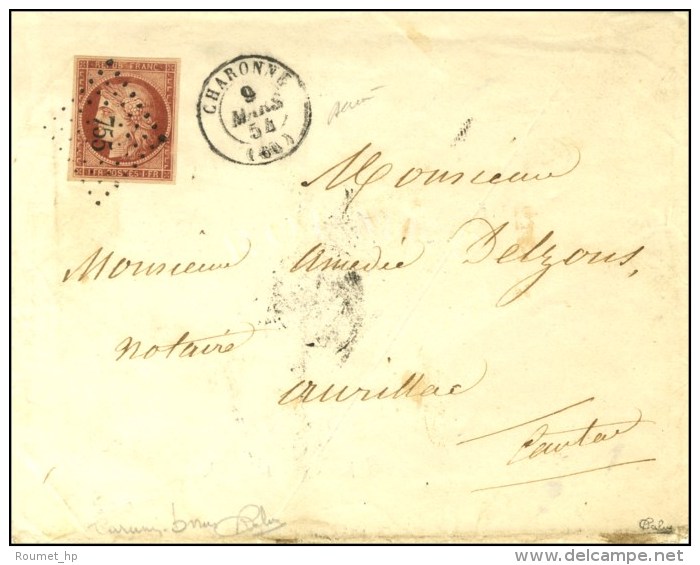 REPUB. FRANC.
755
1.FR POSTES 1.FR
CHARONNE
9
MARS
54
(60)
Monsieur
Monsieur Amédée Delzons,
notaire
Aurillac
Cantal
Calves
Roumet_hp
delcampe.net